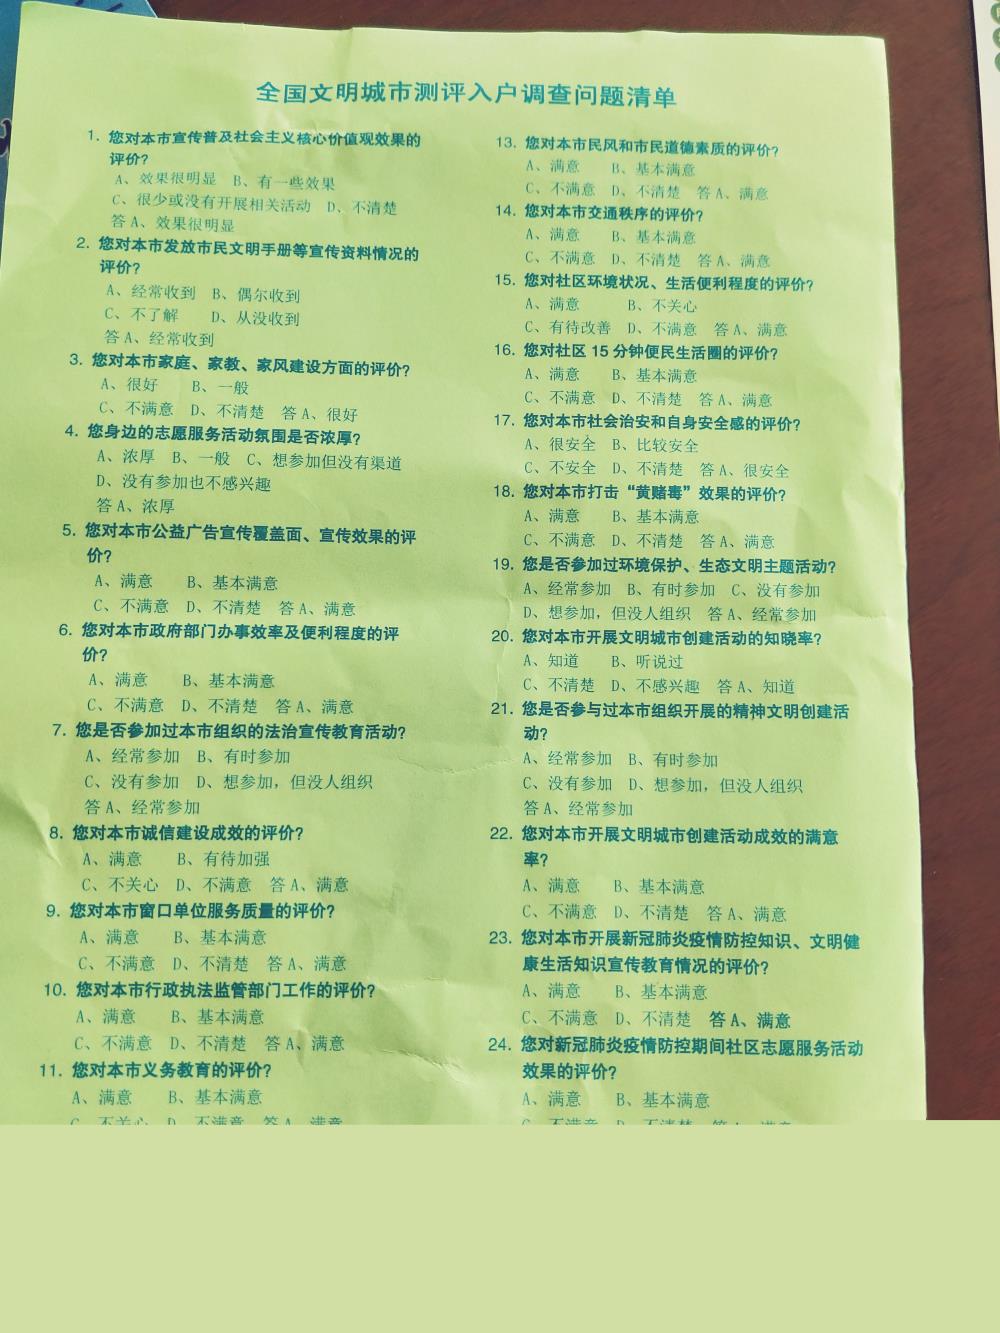 全国文明城市测评入户调查问题清单
1. 您对本市宣传普及社会主义核心价值观效果的
评价?
A、效果很明显 B、有一些效果
C、很少或没有开展相关活动 D、不清楚
答 A、效果很明显
2. 您对本市发放市民文明手册等宣传资料情况的
评价?
A、经常收到 B、偶尔收到
C、不了解 D、从没收到
答 A、经常收到
3. 您对本市家庭、家教、家风建设方面的评价?
A、很好 B、一般
C、不满意 D、不清楚 答 A、很好
4. 您身边的志愿服务活动氛围是否浓厚?
A、浓厚 B、一般 C、想参加但没有渠道
D、没有参加也不感兴趣
答 A、浓厚
5. 您对本市公益广告宣传覆盖面、宣传效果的评
价?
A、满意 B、基本满意
C、不满意 D、不清楚 答 A、满意
6. 您对本市政府部门办事效率及便利程度的评
价?
A、满意 B、基本满意
C、不满意 D、不清楚 答 A、满意
7. 您是否参加过本市组织的法治宣传教育活动?
A、经常参加 B、有时参加
C、没有参加 D、想参加，但没人组织
答 A、经常参加
8. 您对本市诚信建设成效的评价?
A、满意 B、有待加强
C、不关心 D、不满意 答 A、满意
9. 您对本市窗口单位服务质量的评价?
A、满意 B、基本满意
C、不满意 D、不清楚 答 A、满意
10. 您对本市行政执法监管部门工作的评价?
A、满意 B、基本满意
C、不满意 D、不清楚 答 A、满意
11. 您对本市义务教育的评价?
A、满意 B、基本满意
C、不关心 D、不满意 答 A、满意
13. 您对本市民风和市民道德素质的评价?
A、满意 B、基本满意
C、不满意 D、不清楚 答 A、满意
14. 您对本市交通秩序的评价?
A、满意 B、基本满意
C、不满意 D、不清楚 答 A、满意
15. 您对社区环境状况、生活便利程度的评价?
A、满意 B、不关心
C、有待改善 D、不满意 答 A、满意
16. 您对社区 15 分钟便民生活圈的评价?
A、满意 B、基本满意
C、不满意 D、不清楚 答 A、满意
17. 您对本市社会治安和自身安全感的评价?
A、很安全 B、比较安全
C、不安全 D、不清楚 答 A、很安全
18. 您对本市打击“黄赌毒”效果的评价?
A、满意 B、基本满意
C、不满意 D、不清楚 答 A、满意
19. 您是否参加过环境保护、生态文明主题活动?
A、经常参加 B、有时参加 C、没有参加
D、想参加，但没人组织 答 A、经常参加
20. 您对本市开展文明城市创建活动的知晓率?
A、知道 B、听说过
C、不清楚 D、不感兴趣 答 A、知道
21. 您是否参与过本市组织开展的精神文明创建活
动?
A、经常参加 B、有时参加
C、没有参加 D、想参加，但没人组织
答 A、经常参加
22. 您对本市开展文明城市创建活动成效的满意
率?
A、满意 B、基本满意
C、不满意 D、不清楚 答 A、满意
23. 您对本市开展新冠肺炎疫情防控知识、文明健
康生活知识宣传教育情况的评价?
A、满意 B、基本满意
C、不满意 D、不清楚 答 A、满意
24. 您对新冠肺炎疫情防控期间社区志愿服务活动
效果的评价?
A、满意 B、基本满意
C、不满意 D、不清楚 答 A、满意